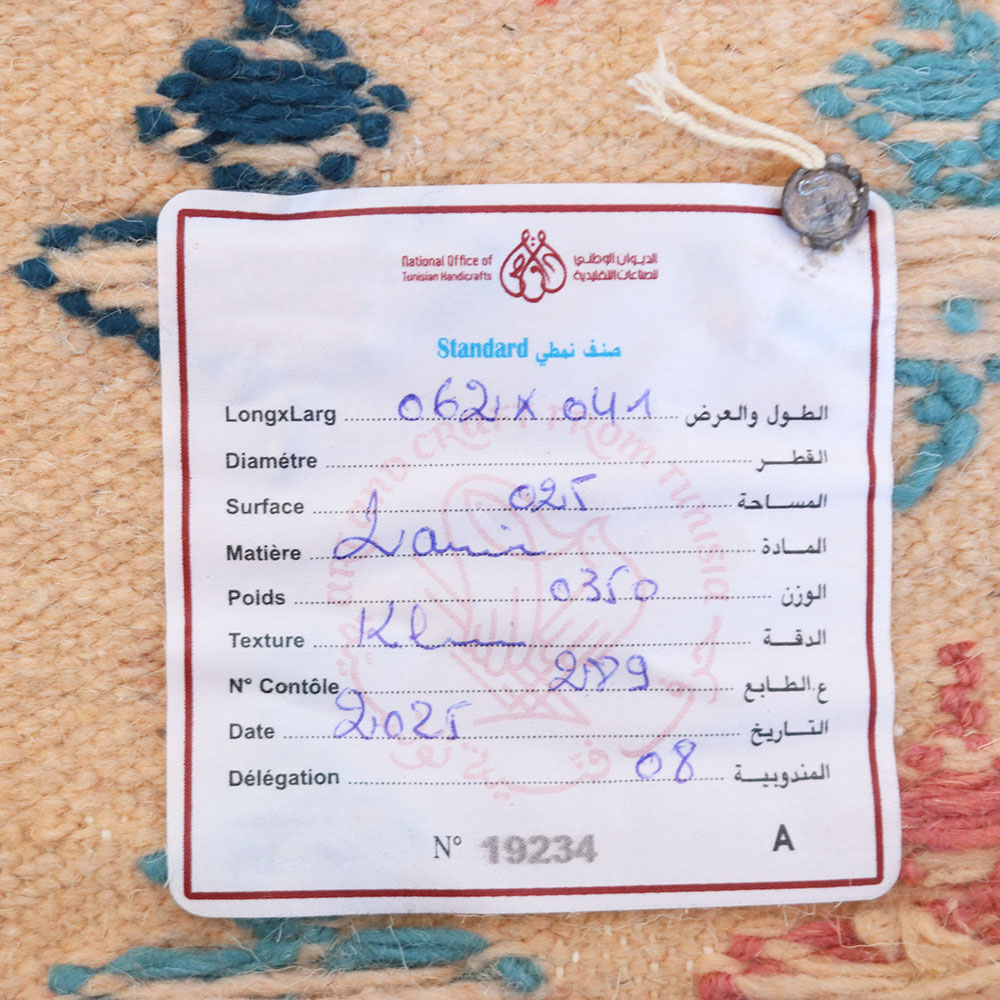 National Office of
Tunisian Handicrafts
الديوان الوطني
للصناعات التقليدية
Standard صنف نمطي
LongxLarg 062 x 041 الطول والعرض
Diamétre القطر
Surface 025 المساحة
Matière المادة
Poids 0350 الوزن
Texture الدقة
N° Contôle ع.الطابع
Date 2025 التاريخ
Délégation 08 المندوبية
N° 19234 A
CRAFT FROM TUNISIA